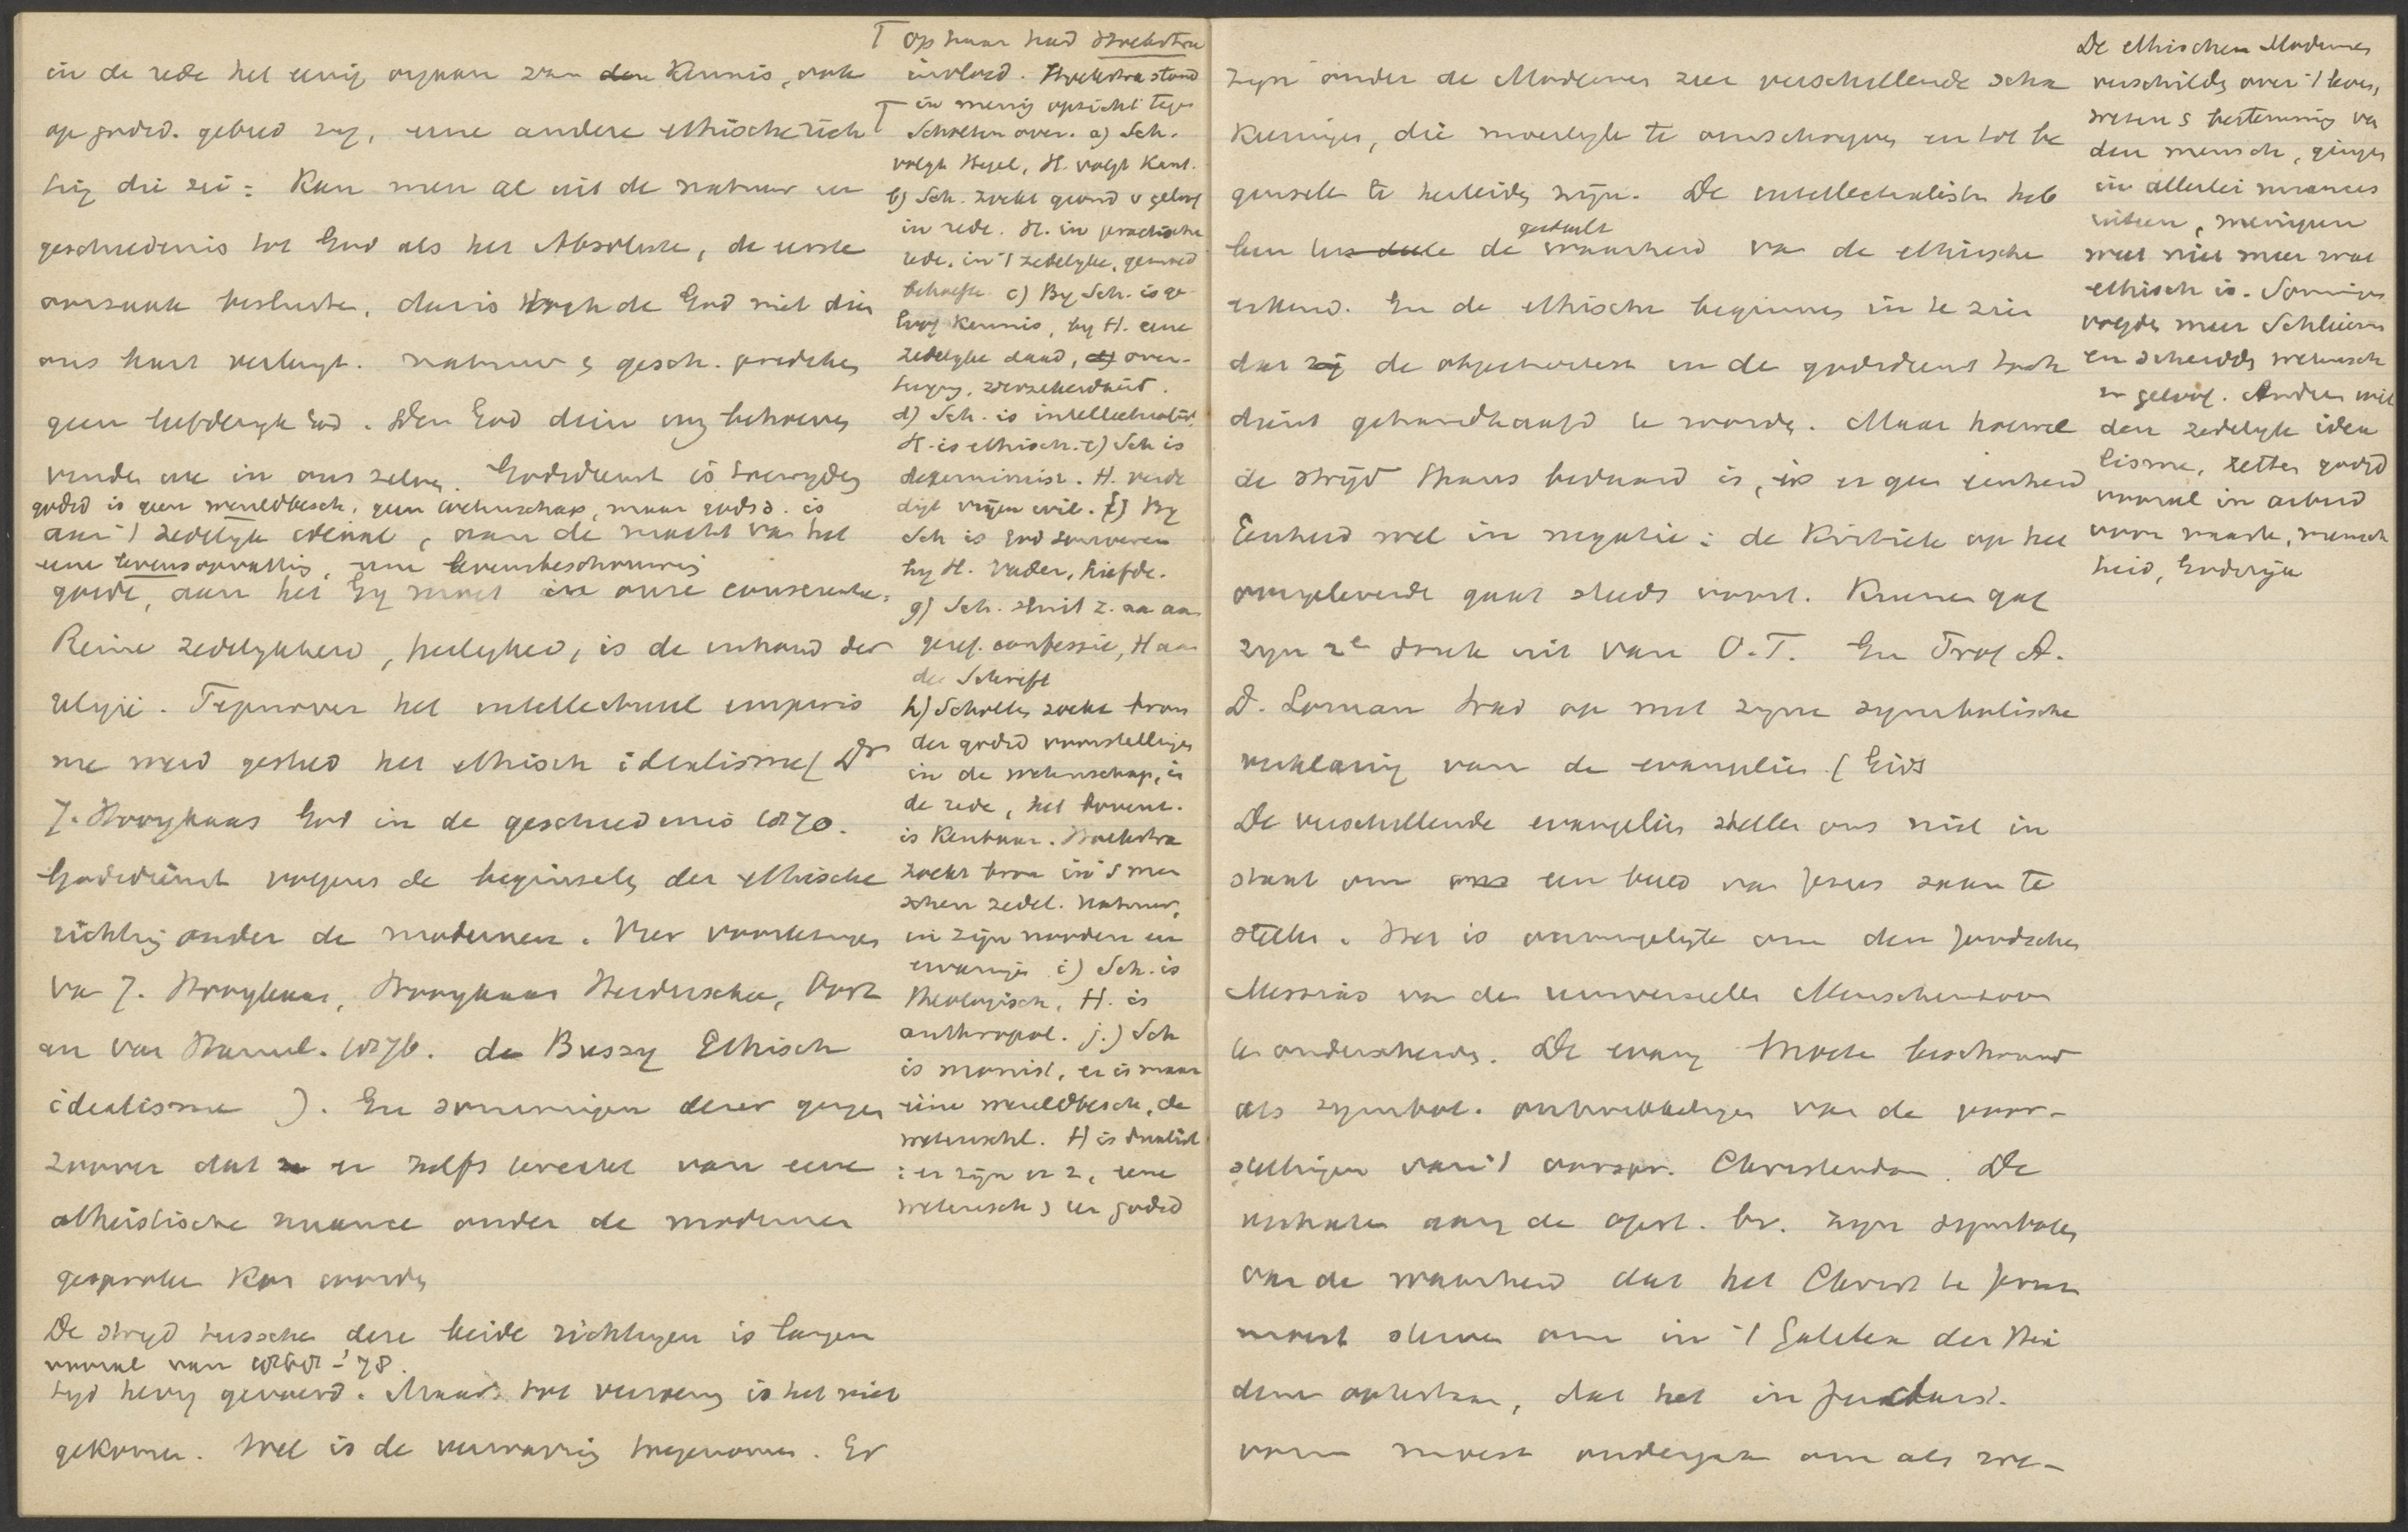 in de rede het eenig orgaan van den Kennis, ook
op godsd. gebied zag, eene andere ethische rich
ting die zei: Kan men al uit de natuur en
geschiedenis tot God als het Absolute, de eerste
oorzaak besluiten, dan is toch de God niet dien
ons hart verlangt. natuur & gesch. prediken
geen liefderijk God. Den God dien wij behoeven
vinden we in ons zelven. Godsdienst is toewijding
godsd is geen wereldbesch, geen wetenschap, maar godsd. is
aan 't zedelijk ideaal, aan de macht van het
eene levensopvatting, eene levensbeschouwing
goede, aan het Gij moet in onze conscientie.
Reine zedelijkheid, heiligheid, is de inhoud der
religie. Tegenover het intellectueel empiris
me werd gesteld het ethisch idealisme (Dr
J. Hooykaas God in de geschiedenis 1870.
Godsdienst volgens de beginselen der ethische
richting onder de modernen. Vier voorlezingen
van J. Hooykaas, Hooykaas Herderschee, Oort
en van Hamel. 1876. de Bussy Ethisch
idealisme). En sommigen dezer gingen
zoover dat er zelfs terecht van eene
atheistische nuance onder de modernen
gesproken Kon worden
De strijd tusschen deze beide richtingen is langen
vooral van 1868-'78.
tijd hevig gevoerd. Maar tot verzoening is het niet
gekomen. Wel is de verwarring toegenomen. Er
op haar had Hoekstra
invloed. Hoekstra stond
in menig opzicht tegen
Scholten over. a) Sch.
volgt Hegel, H. volgt Kant.
b) Sch. zoekt grond v geloof
in rede. H. in practische
rede, in 't zedelijke, gemoed
behoefte. c) By Sch. is ge
loof Kennis, by H. eene
zedelijke daad, d) over-
tuiging, verzekerdheid.
d) Sch. is intellectualist,
H. is ethisch. e) Sch is
determinist. H. verde
digt vrijen wil. f) By
Sch is God souverein
by H. Vader, liefde.
g) Sch. sluit z. aan aan
geref. confessie, H aan
de Schrift
h) Scholten zoekt bron
der godsd voorstellingen
in de wetenschap, in
de rede, het bovenz.
is Kenbaar. Hoekstra
zoekt bron in 's men
schen zedel. natuur,
in zijn nooden en
ervaringen i) Sch. is
theologisch, H. is
anthropol. j.) Sch
is monist, er is maar
eéne wereldbesch, de
wetenschl. H is dualist
: er zijn er 2, eene
wetensch & en godsd
zijn onder de Modernen zeer verschillende scha
keeringen, die moeilijk te omschrijven en tot be
ginselen te herleiden zijn. De intellectualisten heb
gedeelt
ben ten deele de waarheid van de ethische
erkend. En de ethische beginnen in te zien
dat zij de objectiviteit in de godsdienst toch
dient gehandhaafd te worden. Maar hoewel
de strijd thans bedaard is, is er geen eenheid
Eenheid wel in negatie: de Kritiek op het
overgeleverde gaat steeds voort. Kuenen gaf
zijn 2e druk uit van O.T. En Prof A.
D. Loman trad op met zijne symbolische
verklaring van de evangelien (Gids
De verschillende evangelien stellen ons niet in
staat om ons een beeld van Jezus samen te
stellen. Het is onmogelijk om den Joodschen
Messias van den universeelen Menschenzoon
te onderscheiden. De evang moeten beschouwd
als symbol. ontwikkelingen van de voor-
stellingen van 't oorspr. Christendom. De
verhalen aang de opst. bv. zijn symbolen
van de waarheid dat het Christ te Jeruz
moest sterven om in 't Galilea der Hei
denen opstaan, dat het in Joodsch.
vorm moest ondergaan om als we-
De ethischen Modernen
verschilden over 't leven,
wezen & bestemming van
den mensch, gingen
in allerlei nuances
uiteen, menigeen
weet niet meer wat
ethisch is. Sommigen
volgden meer Schleierm
en scheidden wetensch
en geloof. Anderen met
den zedelijk idea
lisme, zetten godsd
vooral in arbeid
voor naaste, mensch
heid, Godsrijk